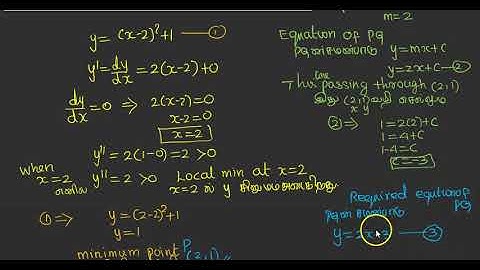 y = (x-2)²+1 ——①
y' = dy/dx = 2(x-2)+0
dy/dx = 0 ⇒ 2(x-2)=0
x-2=0
x=2
y'' = 2(1-0) = 2 > 0
when x=2 y'' = 2 > 0 Local min at x=2
x=2 ல் y
① ⇒ y = (2-2)²+1
y=1
minimum point P (2,1)
m=2
Equation of PQ
y=mx+c
y=2x+c —②
This line passing through (2,1)
x y
②⇒ 1=2(2)+c
1=4+c
1-4=c
c=-3
Required equtionof PQ
y=2x-3 ——③